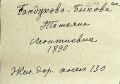 Бондукова-Быкова
Татьяна
Леонтиевна
1890
Жел. дор. косса 130